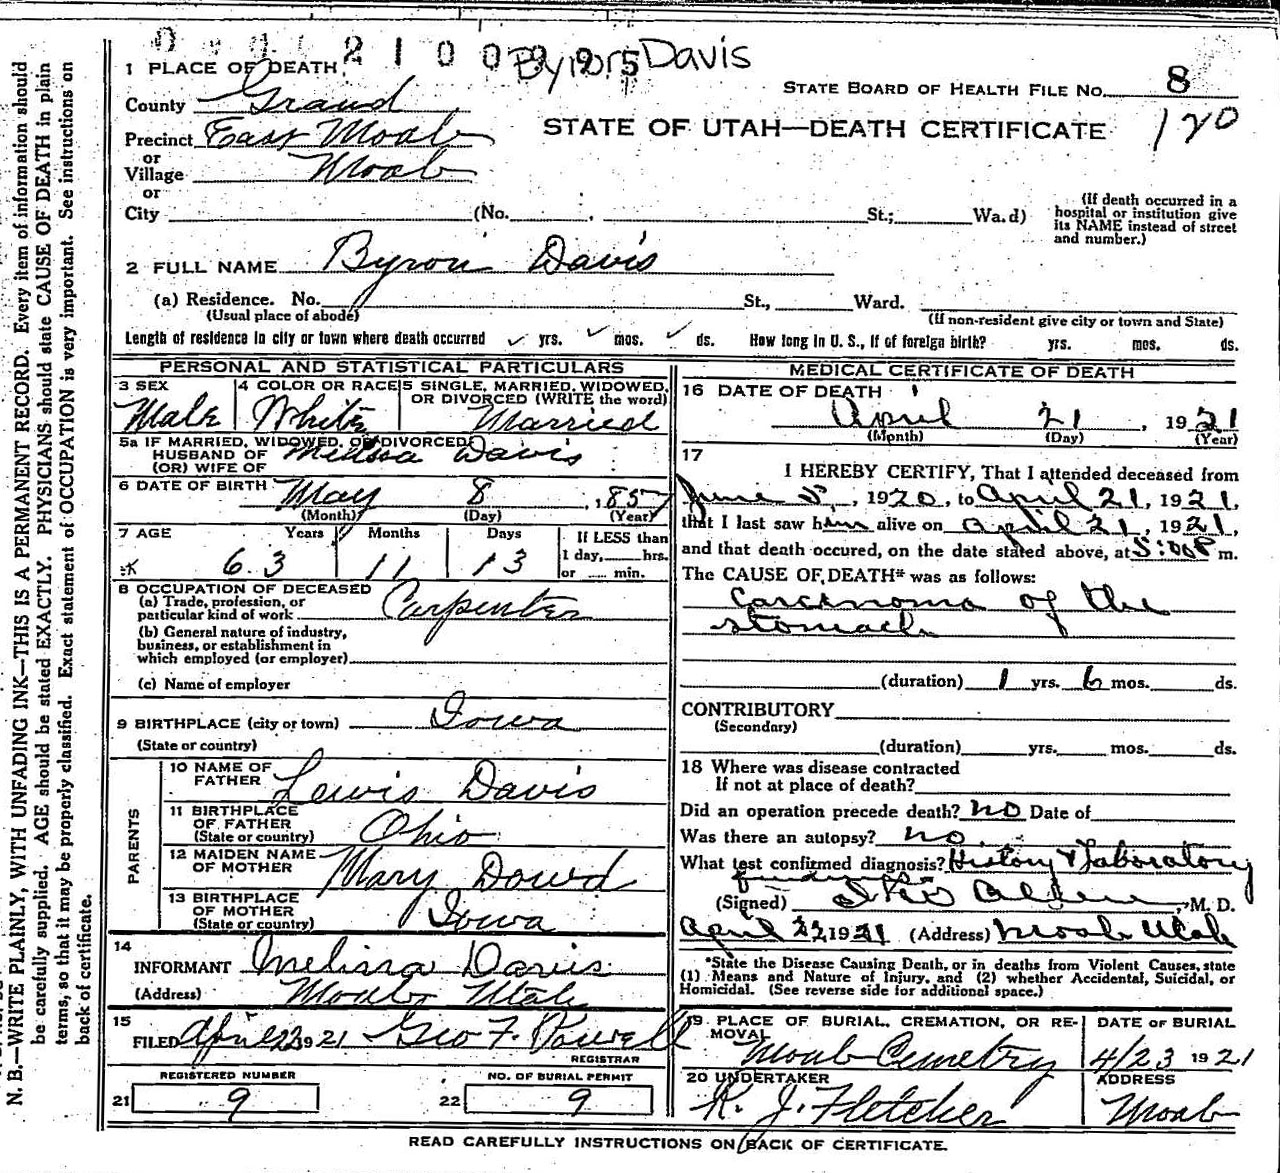 2100995 Byron Davis
1 PLACE OF DEATH
County Grand
STATE BOARD OF HEALTH FILE No. 8
Precinct East Moab
STATE OF UTAH—DEATH CERTIFICATE 120
or
Village Moab
or
City (No. , St.; Wa.d)
(If death occurred in a
hospital or institution give
its NAME instead of street
and number.)
2 FULL NAME Byron Davis
(a) Residence. No. St., Ward.
(Usual place of abode) (If non-resident give city or town and State)
Length of residence in city or town where death occurred ✓ yrs. ✓ mos. ✓ ds. How long in U. S., if of foreign birth? yrs. mos. ds.
PERSONAL AND STATISTICAL PARTICULARS
3 SEX 4 COLOR OR RACE 5 SINGLE, MARRIED, WIDOWED,
OR DIVORCED (WRITE the word)
Male White Married
5a IF MARRIED, WIDOWED, OR DIVORCED
HUSBAND OF Melissa Davis
(OR) WIFE OF
6 DATE OF BIRTH May 8, 1857
(Month) (Day) (Year)
7 AGE Years Months Days If LESS than
1 day, hrs.
63 11 13 or min.
8 OCCUPATION OF DECEASED
(a) Trade, profession, or
particular kind of work Carpenter
(b) General nature of industry,
business, or establishment in
which employed (or employer)
(c) Name of employer
9 BIRTHPLACE (city or town) Iowa
(State or country)
PARENTS
10 NAME OF
FATHER Lewis Davis
11 BIRTHPLACE
OF FATHER Ohio
(State or country)
12 MAIDEN NAME
OF MOTHER Mary Dowd
13 BIRTHPLACE
OF MOTHER Iowa
(State or country)
14
INFORMANT Melissa Davis
(Address) Moab Utah
15
FILED April 23 1921 Geo F. Powell
REGISTRAR
REGISTERED NUMBER NO. OF BURIAL PERMIT
21 9 22 9
MEDICAL CERTIFICATE OF DEATH
16 DATE OF DEATH
April 21, 1921
(Month) (Day) (Year)
17
I HEREBY CERTIFY, That I attended deceased from
June 5, 1920, to April 21, 1921,
that I last saw him alive on April 21, 1921,
and that death occured, on the date stated above, at 5:00P m.
The CAUSE OF DEATH* was as follows:
Carcinoma of the
stomach
(duration) 1 yrs. 6 mos. ds.
CONTRIBUTORY
(Secondary)
(duration) yrs. mos. ds.
18 Where was disease contracted
If not at place of death?
Did an operation precede death? no Date of
Was there an autopsy? no
What test confirmed diagnosis? History & laboratory
(Signed) M. D.
April 22 1921 (Address) Moab Utah
*State the Disease Causing Death, or in deaths from Violent Causes, state
(1) Means and Nature of Injury, and (2) whether Accidental, Suicidal, or
Homicidal. (See reverse side for additional space.)
19 PLACE OF BURIAL, CREMATION, OR RE- DATE OF BURIAL
MOVAL
Moab Cemetry 4/23 1921
20 UNDERTAKER ADDRESS
R. J. Fletcher Moab
READ CAREFULLY INSTRUCTIONS ON BACK OF CERTIFICATE.
N. B.—WRITE PLAINLY, WITH UNFADING INK—THIS IS A PERMANENT RECORD. Every item of information should
be carefully supplied. AGE should be stated EXACTLY. PHYSICIANS should state CAUSE OF DEATH in plain
terms, so that it may be properly classified. Exact statement of OCCUPATION is very important. See instructions on
back of certificate.